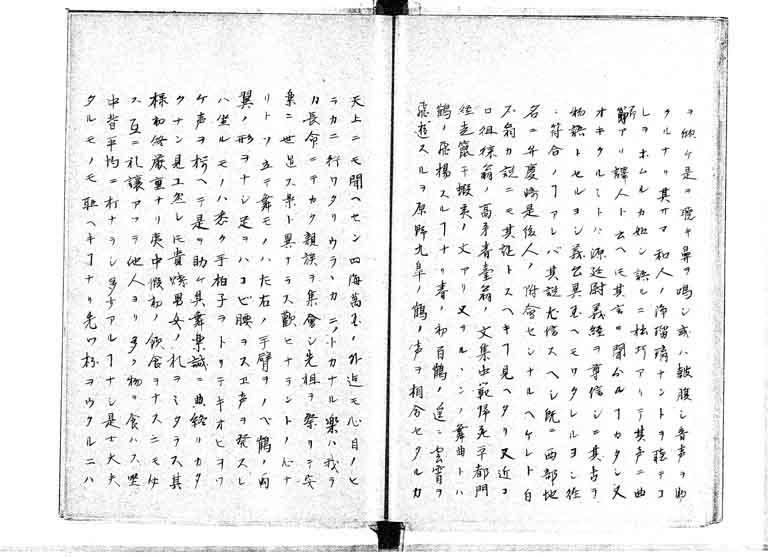 ヲ欣ケ是ヲ聴キ鼻ヲ鳴シ或ハ皷腹シ音声ヲ助
クルナリ其サマ和人ノ浄瑠璃ナントヲ聴テコ
レヲホムルカ如シ謡ニ祐巧アリテ其声ニ曲
節アリ譯人ト云ヘ𪜈其言ヲ聞分ルヿカタシ又
オキクルミトハ源廷尉義経ヲ尊信シ其古ヲ
物語トセルヨシ義公異國ヘモワタレルヨシ従
ニ符合ノヿアレバ其謎尤信スヘシ既ニ西部地
名ニ弁慶崎是後人ノ附會センナルヘケレト白
石翁カ説ニモ其証トスヘキヿ見ヘタリ又近コ
ロ徂徠翁ノ高弟春臺翁ノ文集中範帰死平都門
従走竄于蝦夷ノ文アリ又ヲルヽンノ舞曲トハ
鶴ノ飛揚スルヿナリ春ノ初百鶴ノ逞ニ雲霄ヲ
飛遊スルヲ原野九皐ノ鶴ノ声ヲ相合セタルカ
天上ニモ聞ヘセン四海萬國ノ外迄モ心目ノヒ
ラカニ行ワタリウラヽカニノトカナル楽ハ我ラ
カ長命ニテカク親族ヲ集會シ先祖ヲ祭リテ安
楽ニ世足ス景ト異ナラス歓ヒナラントノ心ナ
リトソ立テ舞モノハ左右ノ手臂ヲノベ鶴ノ両
翼ノ形ヲナシ足ヲハコビ腰ヲスヱ声ヲ発スレ
ハ坐ルモノハ悉ク手拍子ヲトリテキオヒヲツ
ケ声ヲ揃ヘテ是ヲ助ケ其舞楽誠ニ曲終リカタ
クナン見エ然レ𪜈貴賤男女ノ礼ヲミタラス其
様初終厳重ナリ夷中假初ノ飲食ヲナスニモ必
ス互ニ礼譲アツテ他人ヨリ多ク物ヲ食ハス坐
中皆平均ニ打ナラシ多少アルヿナシ是士大夫
タルモノモ耻ヘキヿナリ先ツ杯ヲウクルニハ